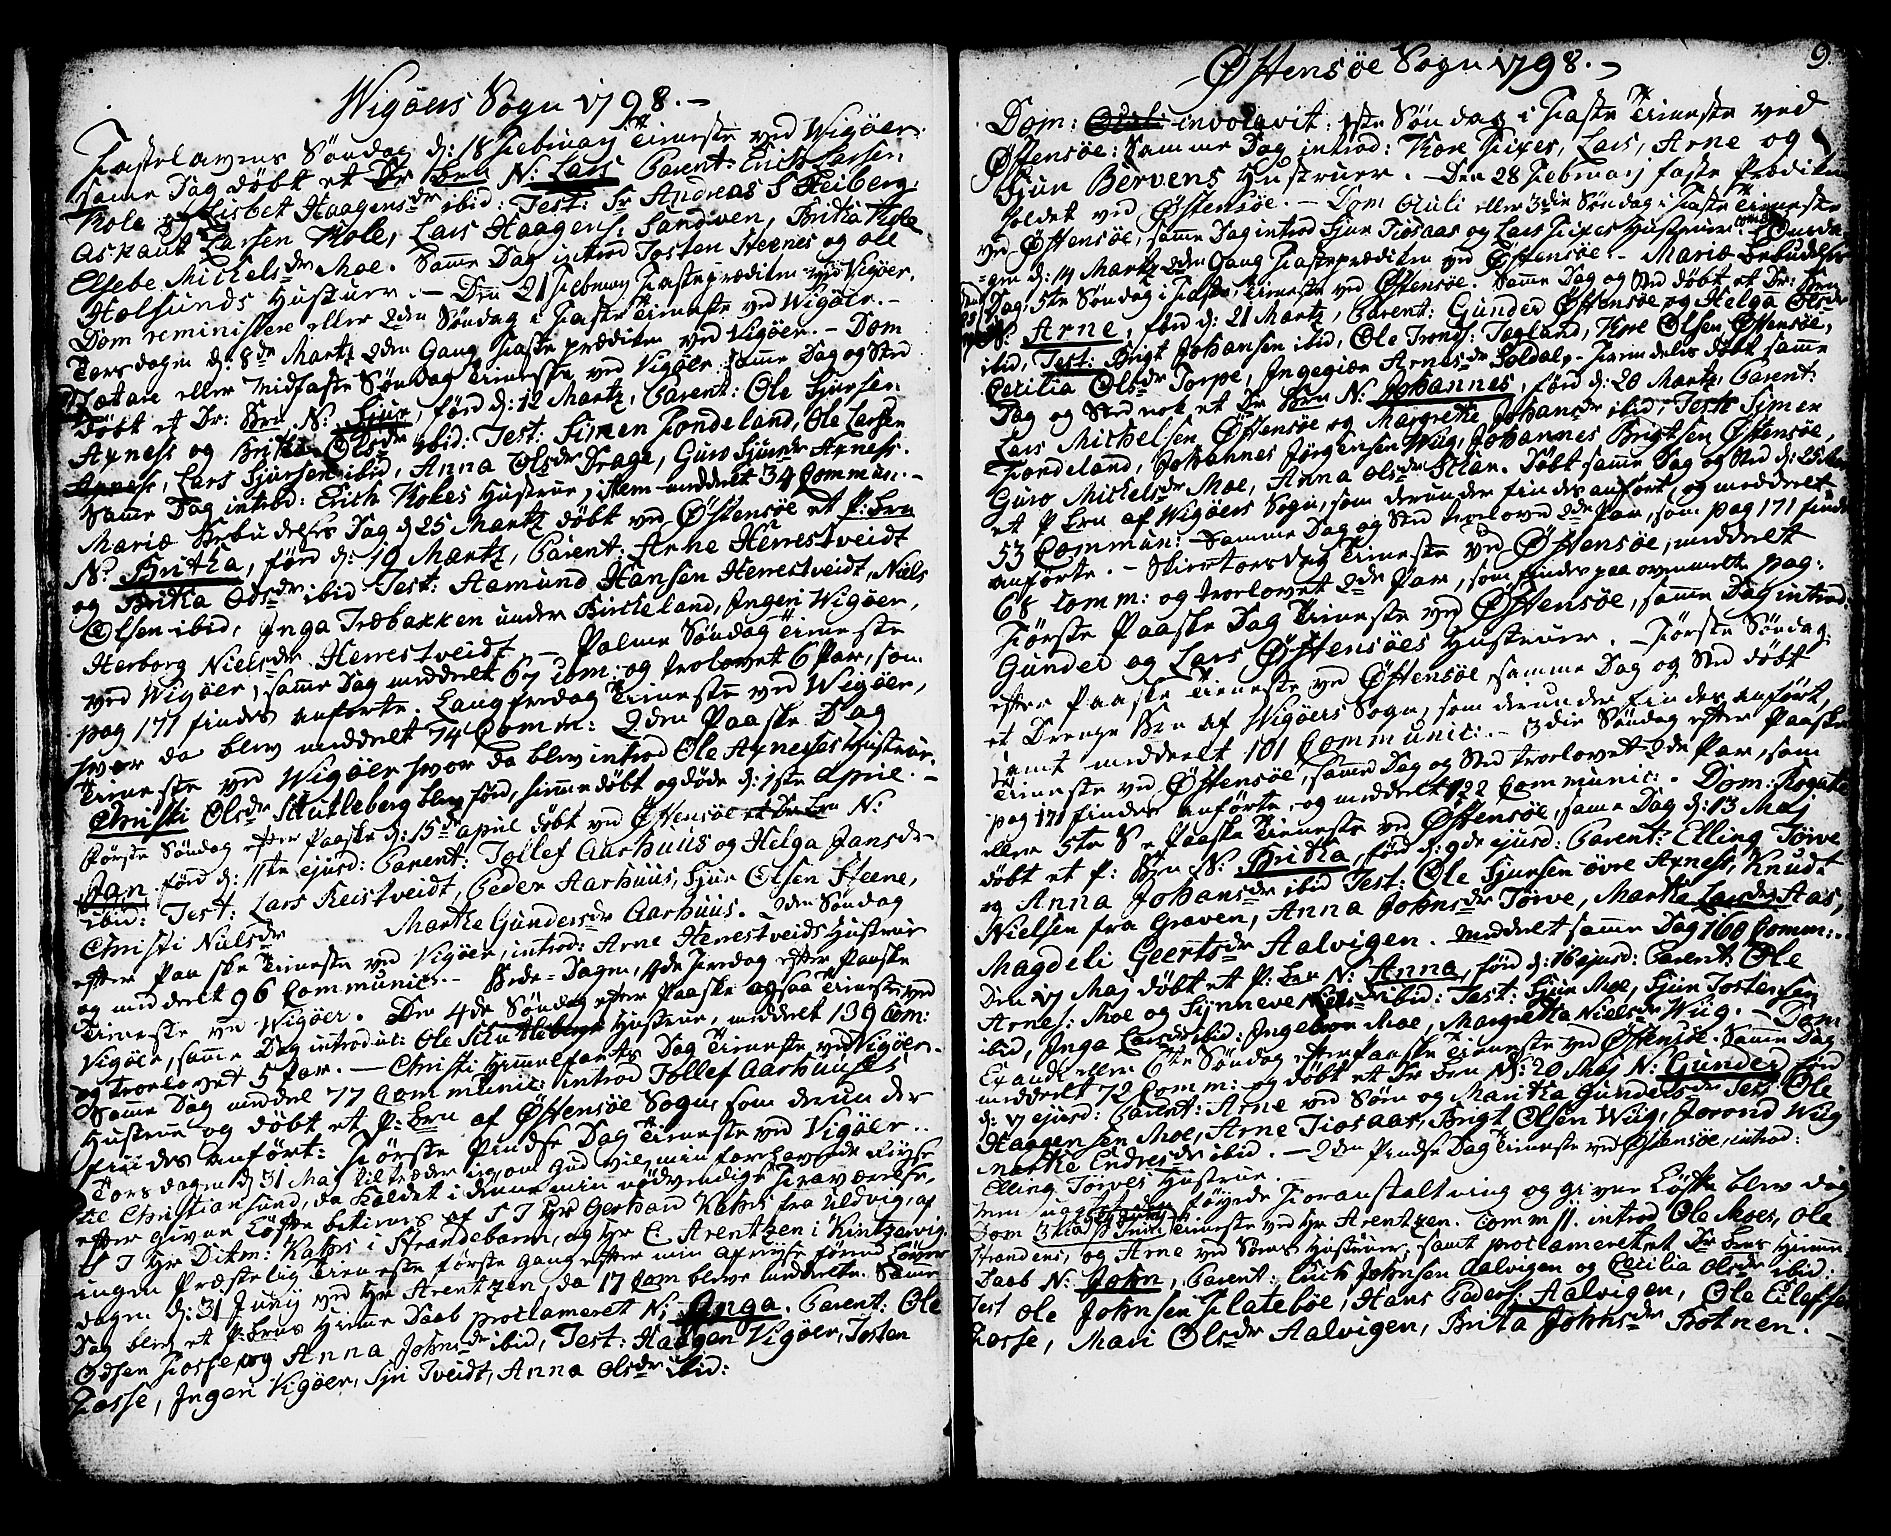 Wigöers Sogn 1798. –
Fastelavens Söndag d: 18 Februarij Tieneste ved Wigöer.
samme Dag döbt et Dr Brn N: Lars Parent: Erich Larsen
Kole og Lisbet Haagensdr ibid: Test: Sr Andreas S Heiberg
Askaut Larsen Kole, Lars Haagens: Sandven, Britha Kole
Elsebe Michelsdr Moe. Samme Dag introd Josten Steznes og Ole
Holsunds Hustruer. – Den 21 Februarij Fasteprædiken ved Vigöer.
Dom reminissere eller 2den Söndag i Faste Tieneste ved Wigöer. –
Torsdagen d: 8de Martz 2den Gang Fasteprædiken ved Vigöer. – Dom
Lætare eller Midfaste Söndag Tieneste ved Vigöer samme Dag og Sted
döbt et Dr: Brn N: Sjur, förd d: 12 Martz, Parent: Ole Sjursen
Axness og Britha Olsdr ibid: Test: Simen Fondeland, Ole Larsen
Axness, Lars Sjursen ibid, Anna Olsdr Drage, Guro Sjursdr Axness.
Samme Dag introd: Erich Koles Hustrue, item meddelt 34 Commun. –
Mariæ Bebudelses Dag d 25 Martz döbt ved Östensöe et P: Brn
N: Britha, förd d: 19 Martz, Parent: Arne Herrestveidt
og Britha Odsdr ibid Test: Aamund Hansen Herrestveidt, Niels
Olsen ibid, Inga Træbakken under Birkeland, Ingeri Wigöer,
Herborg Nielsdr Herrestveidt. – Palme Söndag Tieneste
ved Wigöer, samme Dag meddelt 67 Com: og trolovet 6 Par, som
pag 171 findes anförte. Langfredag Tieneste ved Wigöer,
hvor da blev meddelt 74 Comm: 2den Paaske Dag
Tieneste ved Wigöer hvor da blev introd Ole Axnesses Hustrue.
Christi Olsdr Skutleberg blev förd, hiemedöbt og döde d: 1ste April. –
Förste Söndag efter Paaske d: 15de April döbt ved Östensöe et Dr Brn N:
Jan förd d: 11te ejusd: Parent: Tollef Aarhuus og Helga Jansdr
ibid: Test: Lars Reistveidt, Peder Aarhuus, Sjur Olsen Steene,
Christi Nielsdr Martha Gundersdr Aarhuus. 2den Söndag
efter Paaske Tieneste ved Vigöer, introd: Arne Herrestveids Hustrue
og meddelt 96 Communic: – Bede-Dagen, 4de Fredag efter Paaske
Tieneste ved Wigöer. Den 4de Söndag efter Paaske ogsaa Tieneste ved
Vigöer, samme Dag introduc: Ole Skutlebergs Hustrue, meddelt 139 Com:
og trolovet 5 Par. – Christi Himmelfarts Dag Tieneste ved Vigöer.
Samme Dag meddel 77 Communic: introd Tollef Aarhuuses
Hustrue og döbt et P: Brn af Östensöe Sogn, som derunder
findes anfört: Förste Pindse Dag Tieneste ved Vigöer..
Torsdagen d 31 Maj tiltræder ieg, om Gud vil, min forehavende Reyse
til Christiansund, da Kaldet i denne min nödvendige Fraværelse,
efter given Löfte betienes af S T Hr Gerhard Kahrs fra Uldvig, af
S T Hr Ditm: Kahrs i Strandebarm, og Hr C Arentzen i Kintzervig.
ingen Præstelig Tieneste förste Gang efter min Afreyse förend Löver
dagen d: 31 Junij ved Hr Arentzen, da 17 Com bleve meddelte. Samme
Dag blev et P: Brns Hieme Daab proclameret N: Inga. Parent: Ole
Odsen Fosse, og Anna Johnsdr ibid, Test: Haagen Vigöer, Josten
Fosse, Ingeri Vigöer, Siri Tveidt, Anna Olsdr ibid:
Östensöe Sogn 1798. –
9.
Dom: Oculi involavit: 1ste Söndag i Faste Tieneste ved
Östensöe: Samme Dag introd: Kore Fixes, Lars, Arne og
Sjur Bervens Hustruer. – Den 28 Februarij faste Prædiken
holdet ved Östensöe. – Dom Oculi eller 3die Söndag i Faste Tieneste
ved Östensöe, samme Dag introd Sjur Tiosaas og Lars Fixes Hustruer. Onsda-
gen d: 14 Martz 2den Gang Fasteprædiken ved Östensöe. – Mariæ Bebudelses
Dag, 5te Söndag i Faste, Tieneste ved Östensöe. Samme Dag og Sted döbt et Dr: Brn
N: Arne, förd d: 21 Martz, Parent: Gunder Östensöe og Helga Olsdr
ibid, Test: Brigt Johansen ibid, Ole Tronds: Tegland, Kore Olsen Östensöe,
Cecilia Olsdr Torpe, Ingegier Arnesdr Soldal. – Fremdeles döbt samme
Dag og Sted nok et Dr Brn N: Johannes, förd d: 20 Martz, Parent:
Lars Michelsen Östensöe og Margrethe Johansdr ibid, Test: Simen
Fondeland, Johannes Jörgensen Wiig, Johannes Brigtsen Östensöe,
Guro Michelsdr Moe, Anna Olsdr Stian. Döbt samme Dag og Sted d: 25 Mar
et P Brn af Wigöers Sogn, som derunder findes anfört, og meddelt
53 Commun: Samme Dag og Sted trolovet 2de Par, som pag 171 findes
anförte. – Skiertorsdag Tieneste ved Östensöe, meddelt
68 Comm: og trorlovet 2de Par, som findes paa ovenmelte pag:
Förste Paaske Dag Tieneste ved Östensöe, samme Dag introd:
Gunder og Lars Östensöes Hustruer. – Förste Söndag
efter Paaske Tieneste ved Östensöe samme Dag og Sted döbt
et Drenge Brn af Wigöers Sogn, som derunder findes anfört,
samt meddelt 101 Communic: – 3die Söndag efter Paaske
Tieneste ved Östensöe, samme Dag og Sted trorlovet 2de Par, som
pag 171 findes anförte og meddelt 122 Communic: Dom: Rogate
eller 5te S e Paaske Tieneste ved Östensöe, same Dag d: 13 Maj
döbt et P: Brn N: Britha, förd d: 9de ejusd: Parent: Elling Törve
og Anna Johansdr ibid Test: Ole Sjursen övre Axness, Knud
Nielsen fra Graven, Anna Johnsdr Törve, Martha Larsdr Aas,
Magdeli Geertsdr Aalvigen. Meddelt samme Dag 160 Comm:
Den 17 Maj döbt et P: Brn N: Anna, förd d: 16 ejusd: Parent: Ole
Arnes: Moe og Synneve Nielsdr ibid: Test: Sjur Moe, Sjur Jostensen
ibid, Inga Larsdr ibid: Ingebor Moe, Margretha Nielsdr Wiig. – Dom
Exaudi eller 6te Söndag efter Paaske Tieneste ved Östensöe. Samme Dag
meddelt 72 Comm: og döbt et Dr Brn d: 20 Maj N: Gunder förd
d: 17 ejusd: Parent: Arne ved Söen og Maritha Gundersdr Test: Ole
Haagensen Moe, Arne Tiosaas, Brigt Olsen Wiig, Jorond Wiig
Martha Endresdr ibid. – 2den Pindse Dag Tieneste ved Östensöe, introd:
Elling Törves Hustrue.
föyede Foranstaltning og given Löfte blev da
Dom 3 Tieneste ved Hr Arentzen. Comm 11. introd Ole Moes, Ole
Strandens, og Arne ved Söens Hustruer, samt proclameret et Dr Brns Hieme
Daab N: John, Parent: Erich Johnsen Aalvigen og Cecilia Olsdr ibid:
Test Ole Johnsen Flateböe, Hans Peders: Aalvigen, Ole Eilefsen
Fosse, Mari Olsdr Aalvigen, Brita Johnsdr Botnen. –